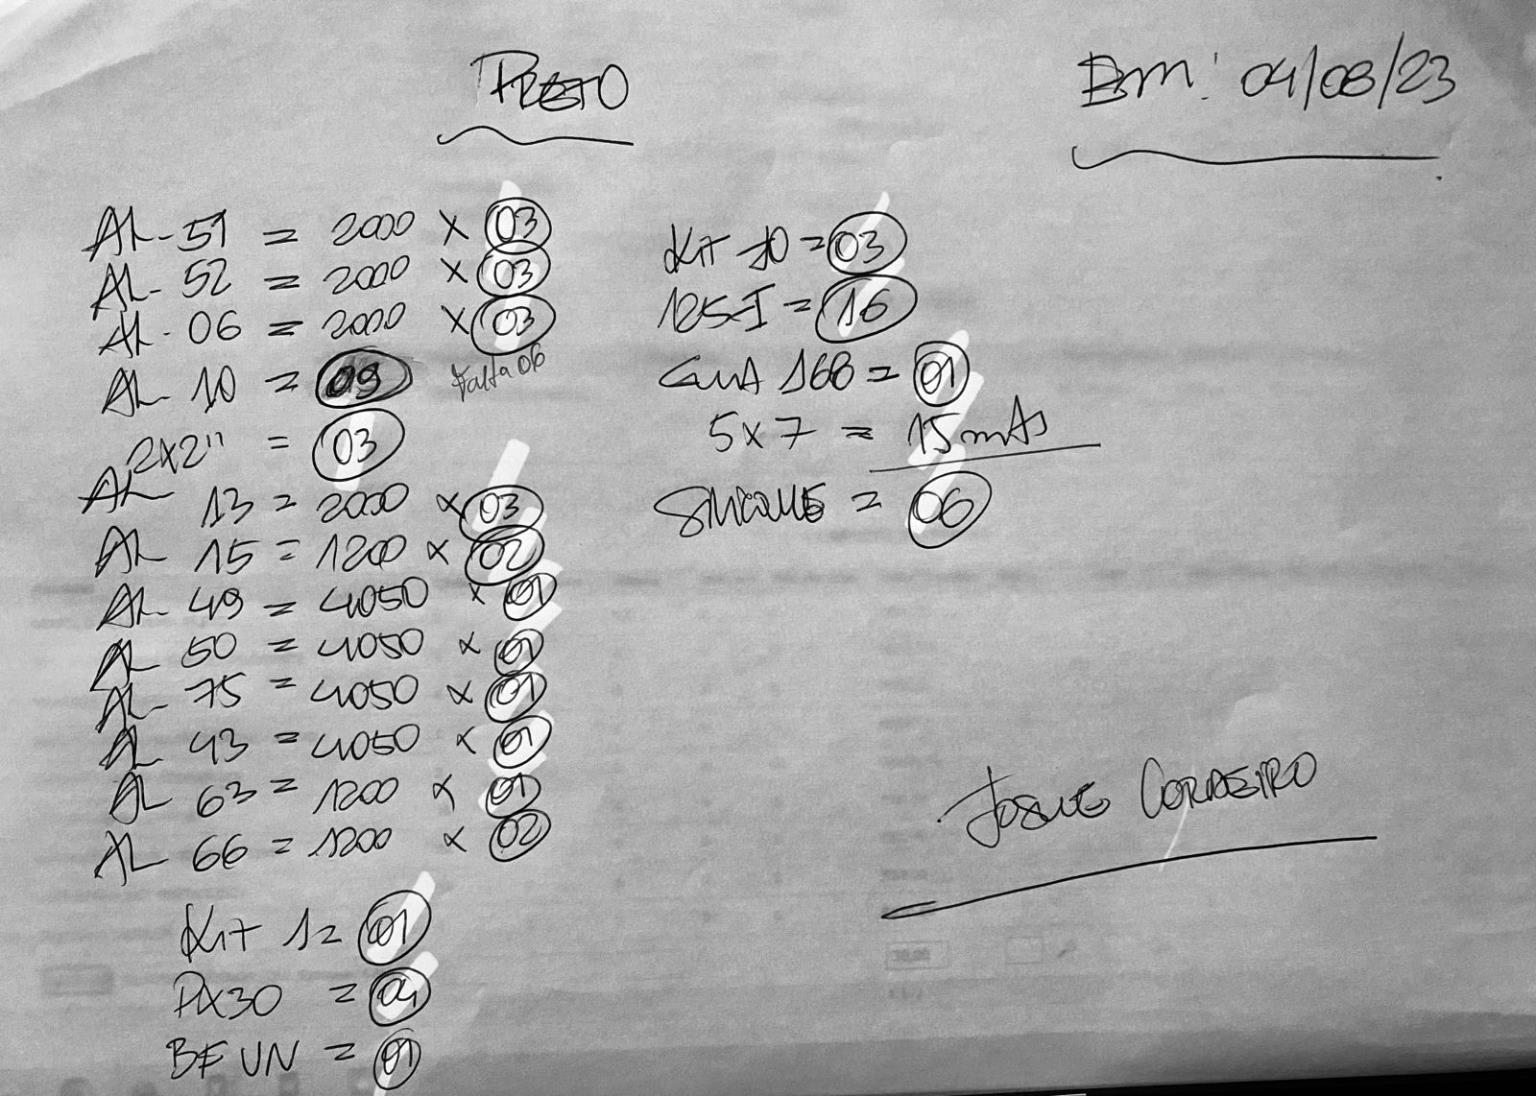 PRETO
Em: 04/08/23
AL-51 = 2000 x 03
AL-52 = 2000 x 03
AL-06 = 2000 x 03
AL 10 = 09 Falta 06
2x2" = 03
AL 13 = 2000 x 03
AL 15 = 1200 x 02
AL 49 = 4050 x 01
AL 50 = 4050 x 01
AL 75 = 4050 x 01
AL 43 = 4050 x 01
AL 63 = 1200 x 01
AL 66 = 1200 x 02
Kit 1 = 01
PX30 = 04
BF UN = 01
Kit 10 = 03
125-I = 16
168 = 01
5x7 = 15 mts
SILICONE = 06
JOSUE CORDEIRO